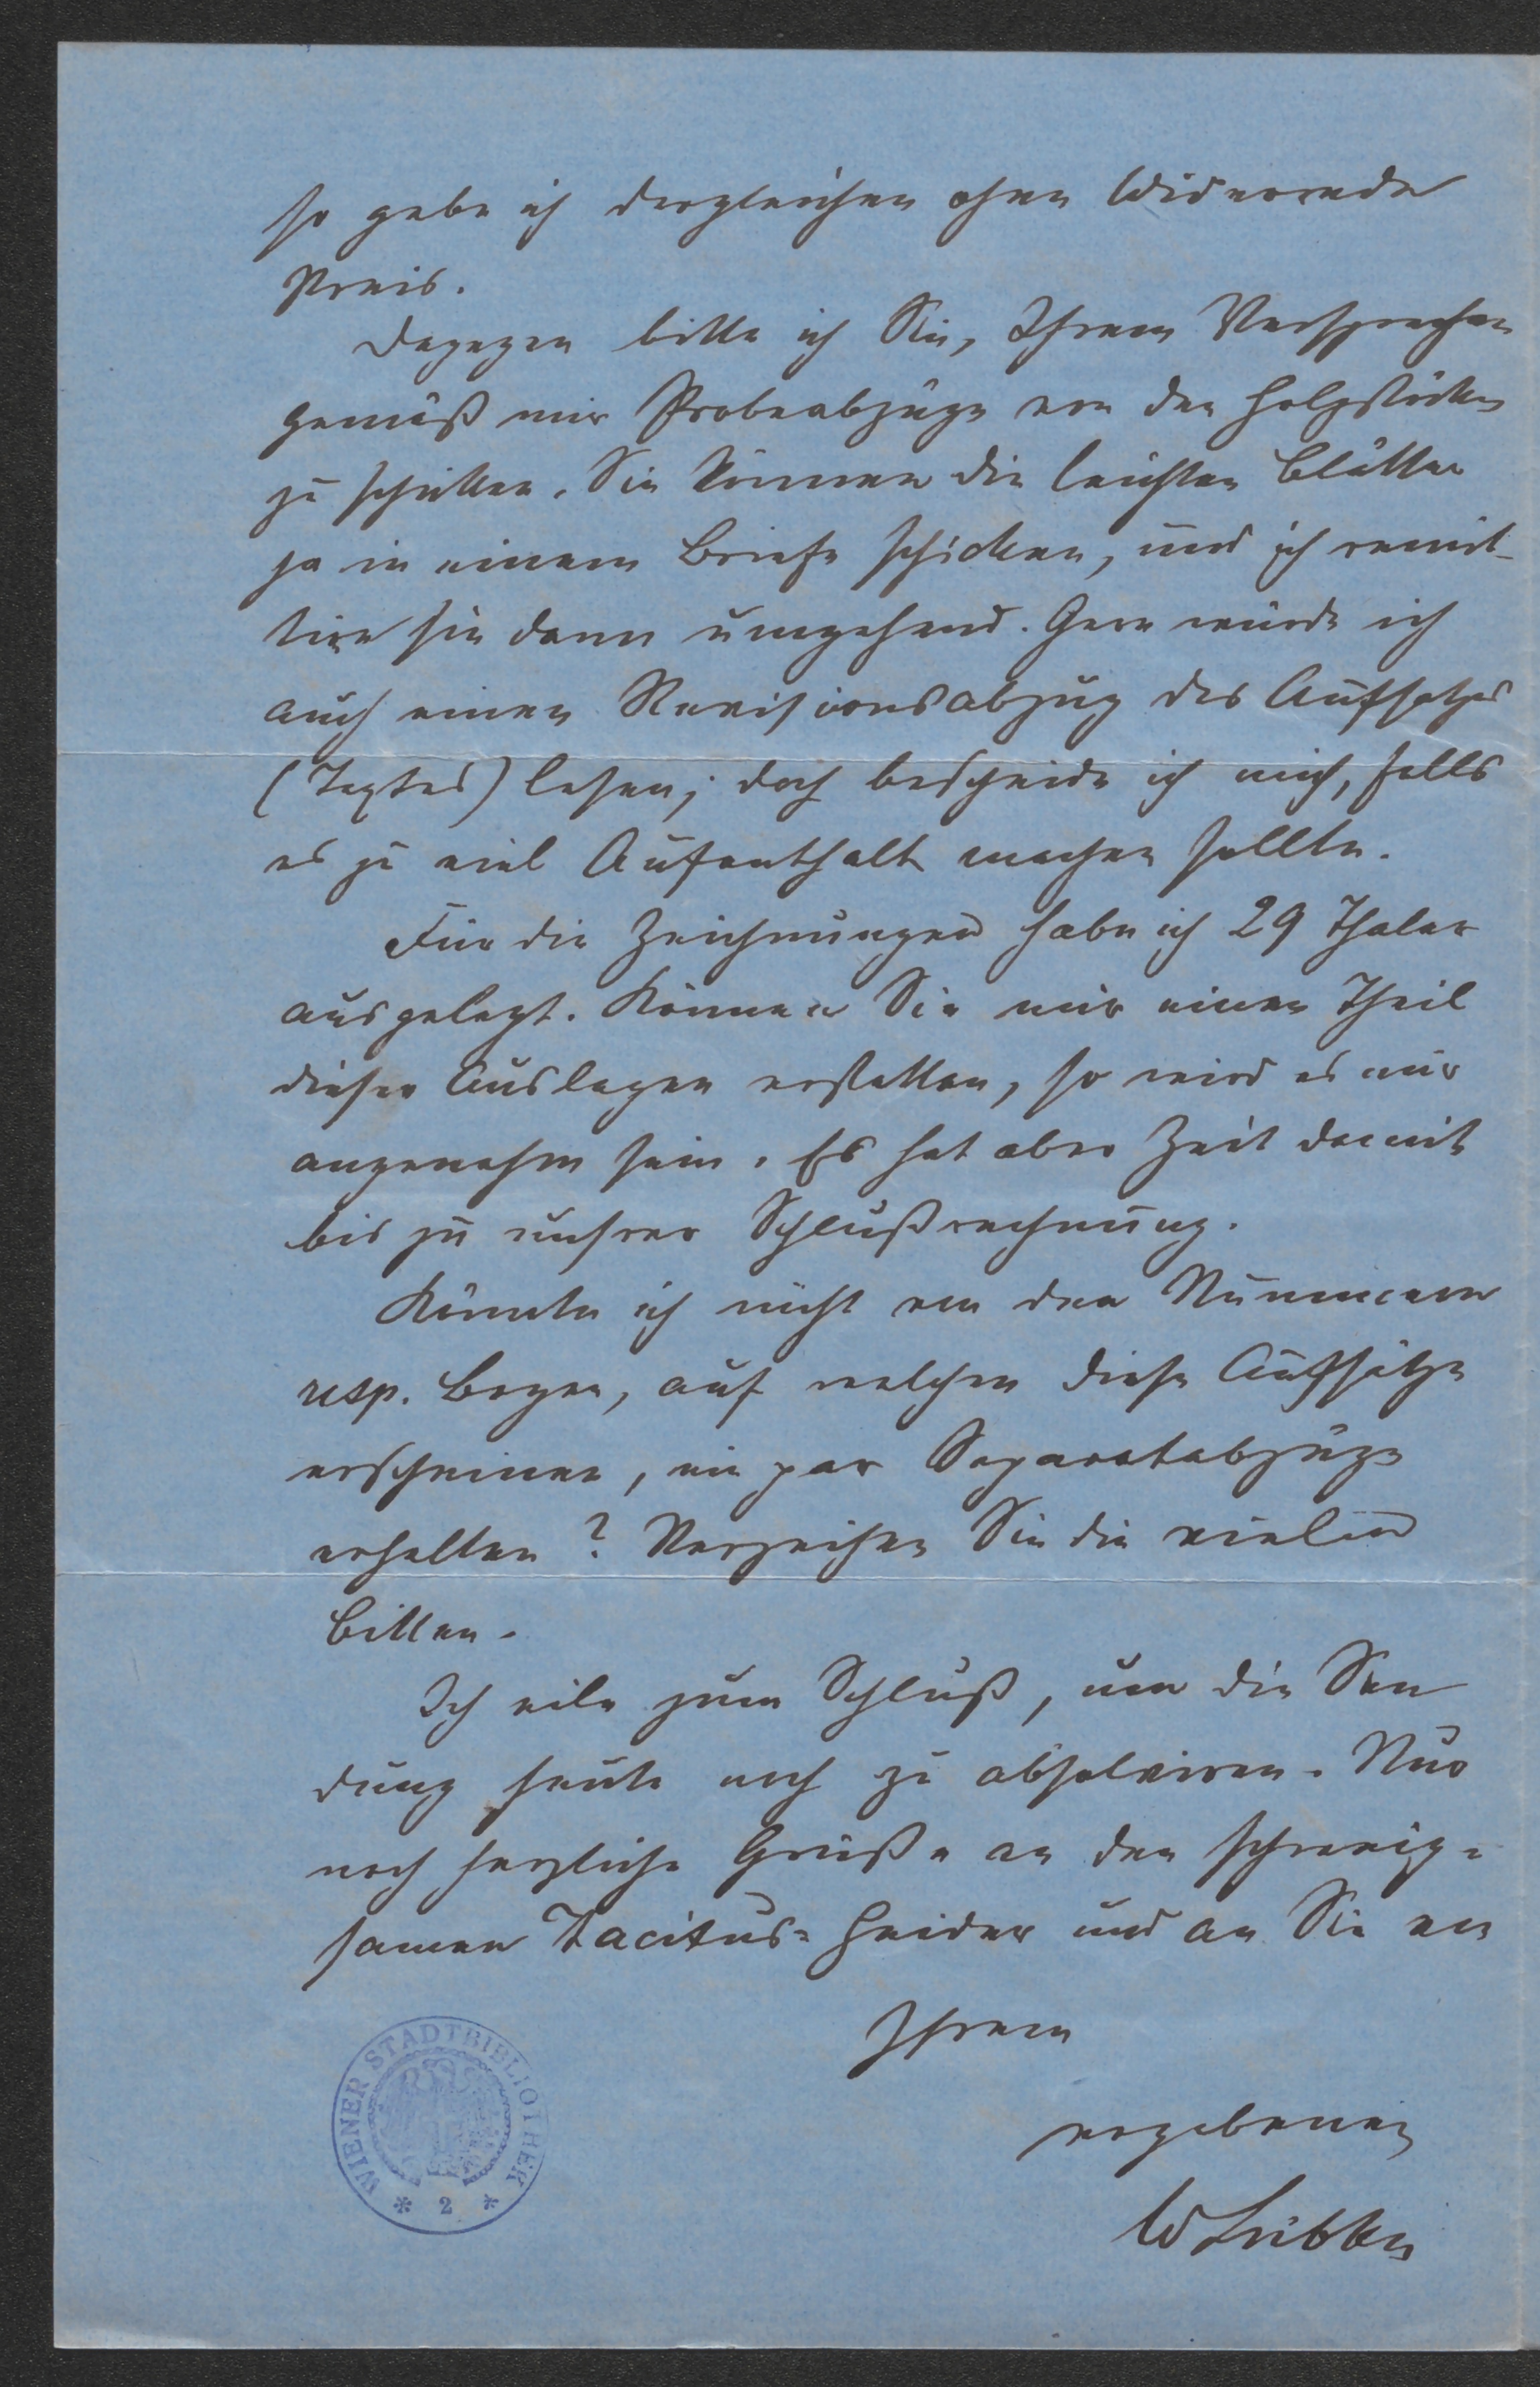 so gebe ich dergleichen ohne Widerrede
Preis.
Dagegen bitte ich Sie, Ihrem Versprechen
gemäß mir Probeabzüge von den Holzstöcken
zu schicken. Sie können die leichten Blätter
ja in einem Briefe schicken, und ich remit-
tire sie dann umgehend. Gern würde ich
auch einen Revisionsabzug des Aufsatzes
(Textes) lesen; doch bescheide ich mich, falls
es zu viel Aufenthalt machen sollte.
Für die Zeichnungen habe ich 29 Thaler
ausgelegt. Können Sie mir einen Theil
dieser Auslagen erstatten, so wird es mir
angenehm sein. Es hat aber Zeit damit
bis zu unsrer Schlußrechnung.
Könnte ich nicht von den Nummern
resp. Bogen, auf welchen diese Aufsätze
erscheinen, ein par Separatabzüge
erhalten? Verzeihen Sie die vielen
Bitten.
Ich eile zum Schluß, um die Sen
dung heute noch zu absolviren. Nur
noch herzliche Grüße an den schweig-
samen Tacitus-Heider und an Sie von
Ihrem
ergebenen
W Lübke
WIENER STADTBIBLIOTHEK
* 2 *